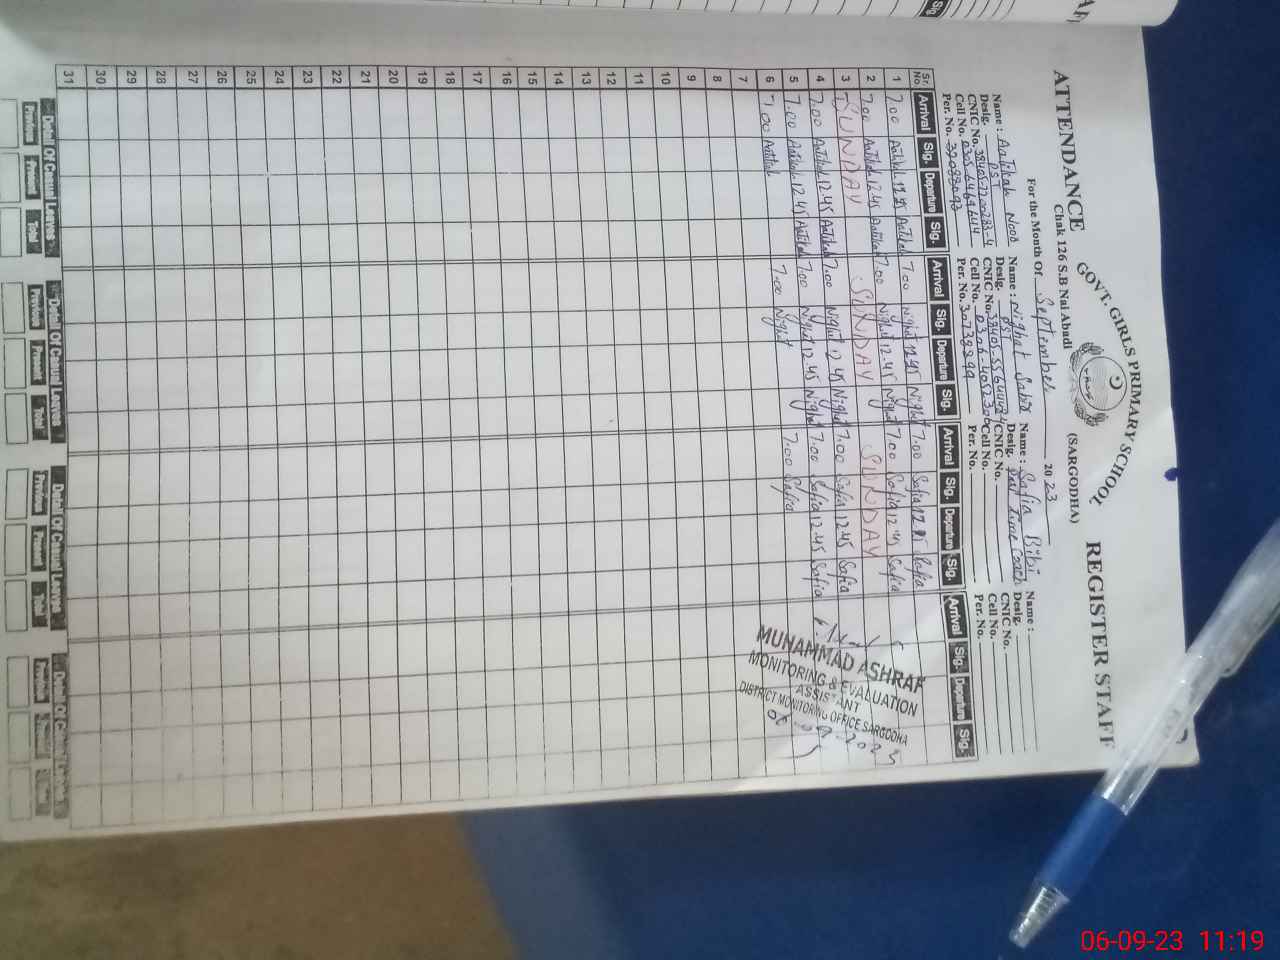 ATTENDANCE
GOVT. GIRLS PRIMARY SCHOOL
REGISTER STAFF
Chak 126 S.B Nai Abadi
(SARGODHA)
For the Month Of September 2023
Name : Aatikah Noor
Desig. PST
CNIC No.
Cell No.
Per. No.
Name : Nighat Sabir
Desig. PST
CNIC No.
Cell No.
Per. No. 30738399
Name : Safia Bibi
Desig. Part time Coach
CNIC No.
Cell No.
Per. No.
Name :
Desig.
CNIC No.
Cell No.
Per. No.
Sr. No Arrival Sig. Departure Sig. Arrival Sig. Departure Sig. Arrival Sig. Departure Sig. Arrival Sig. Departure Sig.
1 7.00 Aatikah Aatikah 7.00 Nighat Nighat 7.00 Safia Safia
2 7.00 Aatikah 12.45 Aatikah 7.00 Nighat 12.45 Nighat 7.00 Safia 12.45 Safia
3 SUNDAY SUNDAY SUNDAY
4 7.00 Aatikah 12.45 Aatikah 7.00 Nighat 12.45 Nighat 7.00 Safia 12.45 Safia
5 7.00 Aatikah 12.45 Aatikah 7.00 Nighat 12.45 Nighat 7.00 Safia 12.45 Safia
6 7.00 Aatikah 7.00 Nighat 7.00 Safia
7
8
9
10
11
12
13
14
15
16
17
18
19
20
21
22
23
24
25
26
27
28
29
30
31
MUHAMMAD ASHRAF
MONITORING & EVALUATION
ASSISTANT
DISTRICT MONITORING OFFICE SARGODHA
06-09-2023
Detail Of Casual Leaves Detail Of Casual Leaves Detail Of Casual Leaves Detail Of Casual Leaves
Previous Present Total Previous Present Total Previous Present Total Previous Present Total
06-09-23 11:19